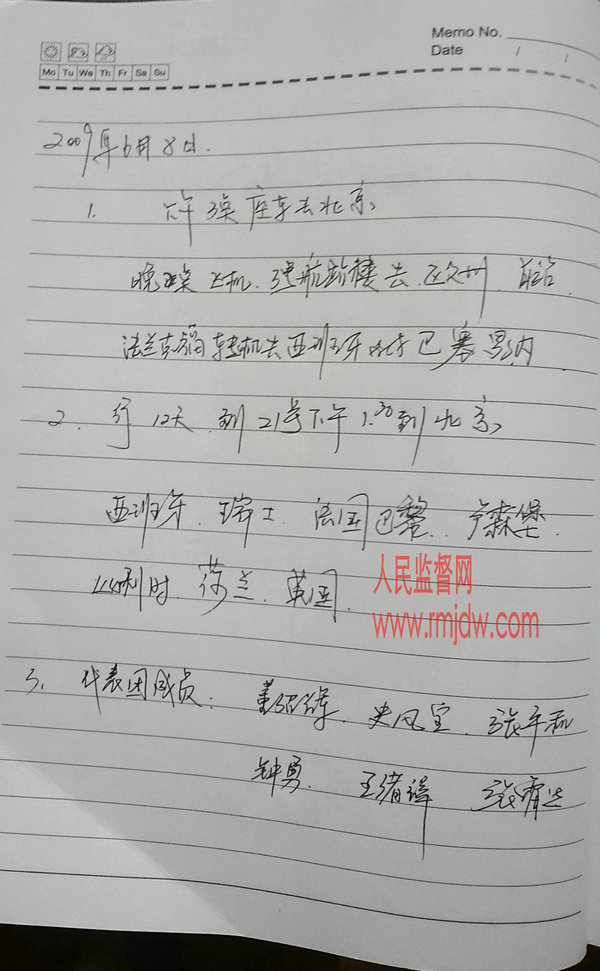 Memo No.
Date / /
Mo Tu We Th Fr Sa Su
2009年6月8日.
1. 下午 座车去北京
晚 飞机. 航 去. 欧州.
法兰克福转机去西班牙 巴塞罗内
2. 行12天. 到21号下午1.30到北京
西班牙. 瑞士. 法国巴黎. 卢森堡.
比利时. 荷兰. 英国.
人民监督网
www.rmjdw.com
3. 代表团成员: 史凤宝. 张平和
钟勇. 王绪祥 张